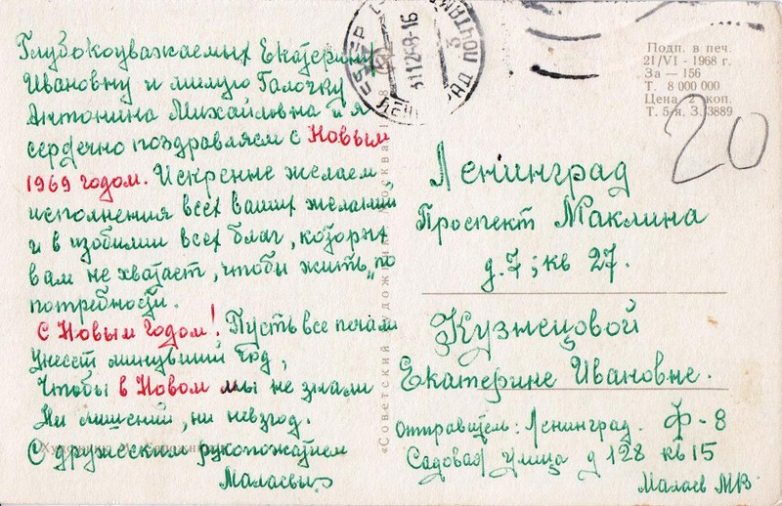 Глубокоуважаемых Екатерину
Ивановну и милую Галочку
Антонина Михайловна и я
сердечно поздравляем с Новым
1969 годом. Искренне желаем
исполнения всех ваших желаний
и в изобилии всех благ, которых
вам не хватает, чтобы жить „по
потребности.
С Новым Годом! Пусть все печали
Унесет минувший Год,
Чтобы в Новом мы не знали
Ни лишений, ни невзгод.
С дружеским рукопожатием
Малаевы
«Советский художник» Москва
СССР
311268-16
Подп. в печ.
21/VI - 1968 г.
За — 156
Т. 8 000 000
Цена 2 коп.
Т. 5-я. З. 3889
20
Ленинград
Проспект Маклина
д. 7; кв 27.
Кузнецовой
Екатерине Ивановне.
Отправитель: Ленинград. Ф-8
Садовая улица д 128 кв 15
Малаев МВ